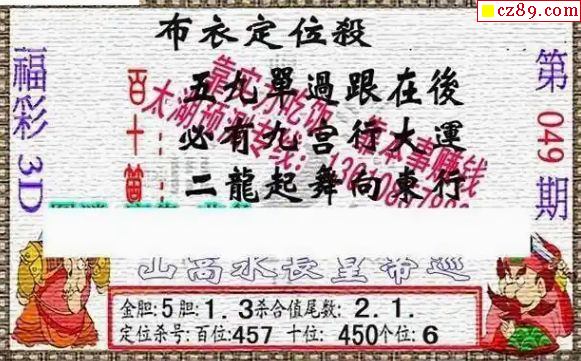 cz89.com
布衣定位殺
福彩3D
第049期
百:五九單過跟在後
十:必有九宫行大運
二龍起舞向東行
山高水長皇帝巡
金胆:5胆:1.3杀合值尾数:2.1.
定位杀号:百位:457 十位:450个位:6